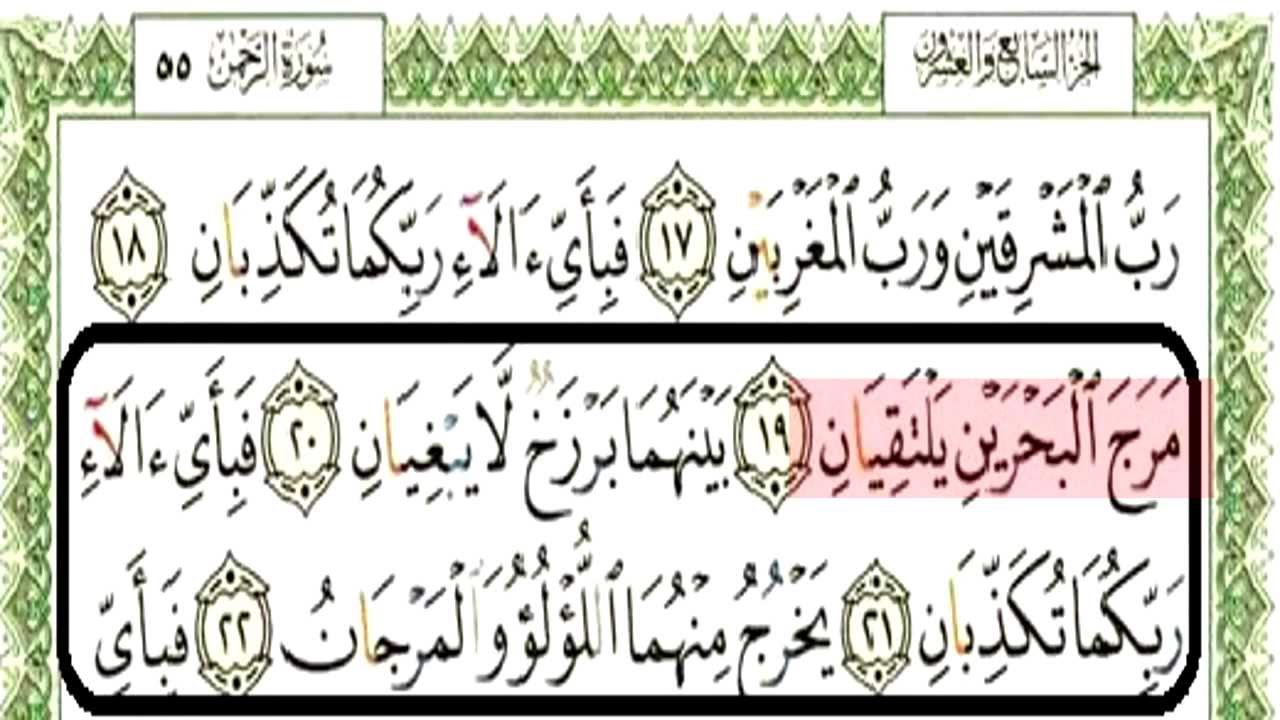 الجزء السابع والعشرون
سورة الرحمن ٥٥
رَبُّ ٱلْمَشْرِقَيْنِ وَرَبُّ ٱلْمَغْرِبَيْنِ ١٧ فَبِأَيِّ ءَالَآءِ رَبِّكُمَا تُكَذِّبَانِ ١٨
مَرَجَ ٱلْبَحْرَيْنِ يَلْتَقِيَانِ ١٩ بَيْنَهُمَا بَرْزَخٌ لَّا يَبْغِيَانِ ٢٠ فَبِأَيِّ ءَالَآءِ
رَبِّكُمَا تُكَذِّبَانِ ٢١ يَخْرُجُ مِنْهُمَا ٱللُّؤْلُؤُ وَٱلْمَرْجَانُ ٢٢ فَبِأَيِّ